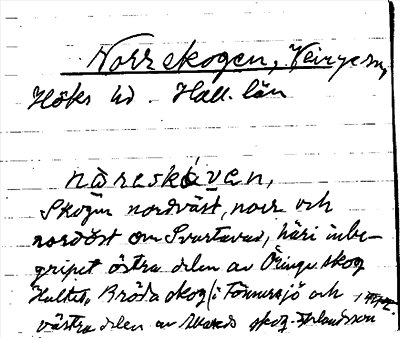 Norrskogen, Veinge sn,
Höks hd. Hall. län
nåreskåven,
Skogen nordväst, norr och
nordöst om Svartavad, häri inbe-
gripet östra delen av Öringe skog
Hultet, Bröda skog i Tönnersjö och
västra delen av skog.